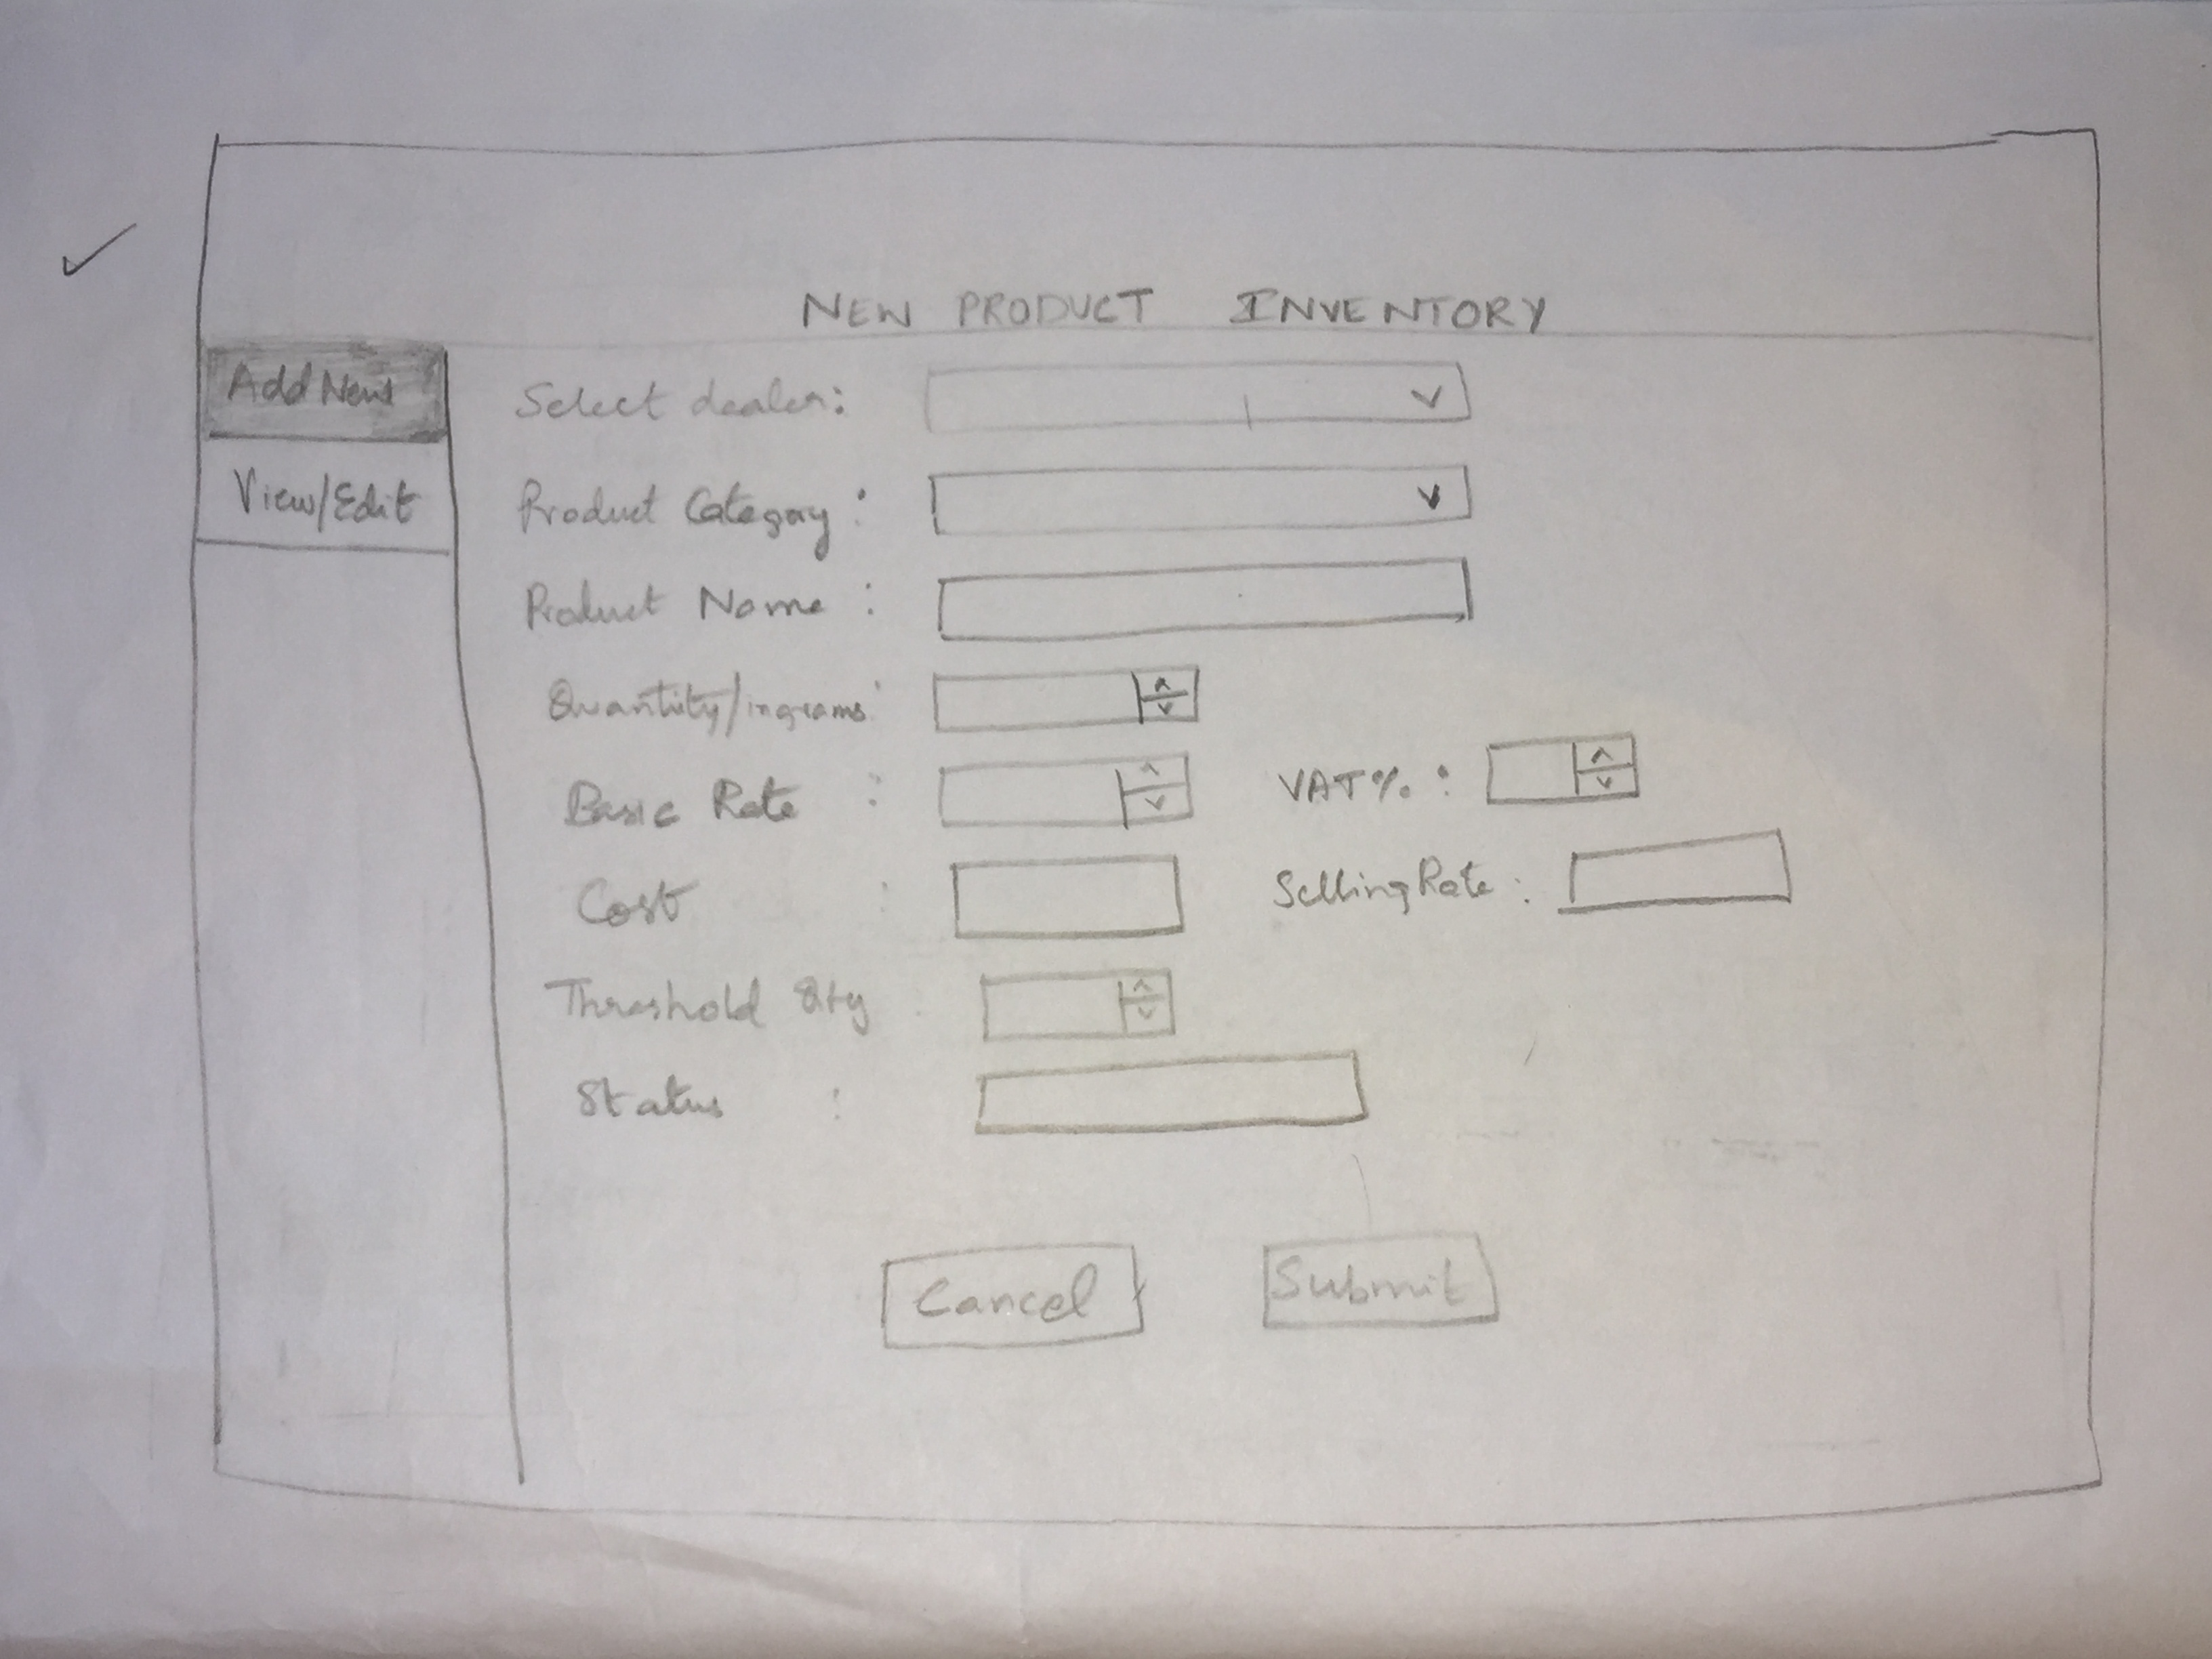 NEW PRODUCT INVENTORY
Add New
View/Edit
Select dealer:
Product Category :
Product Name :
Quantity/ingrams:
Basic Rate : VAT% :
Cost : Selling Rate :
Threshold Qty
Status :
Cancel Submit